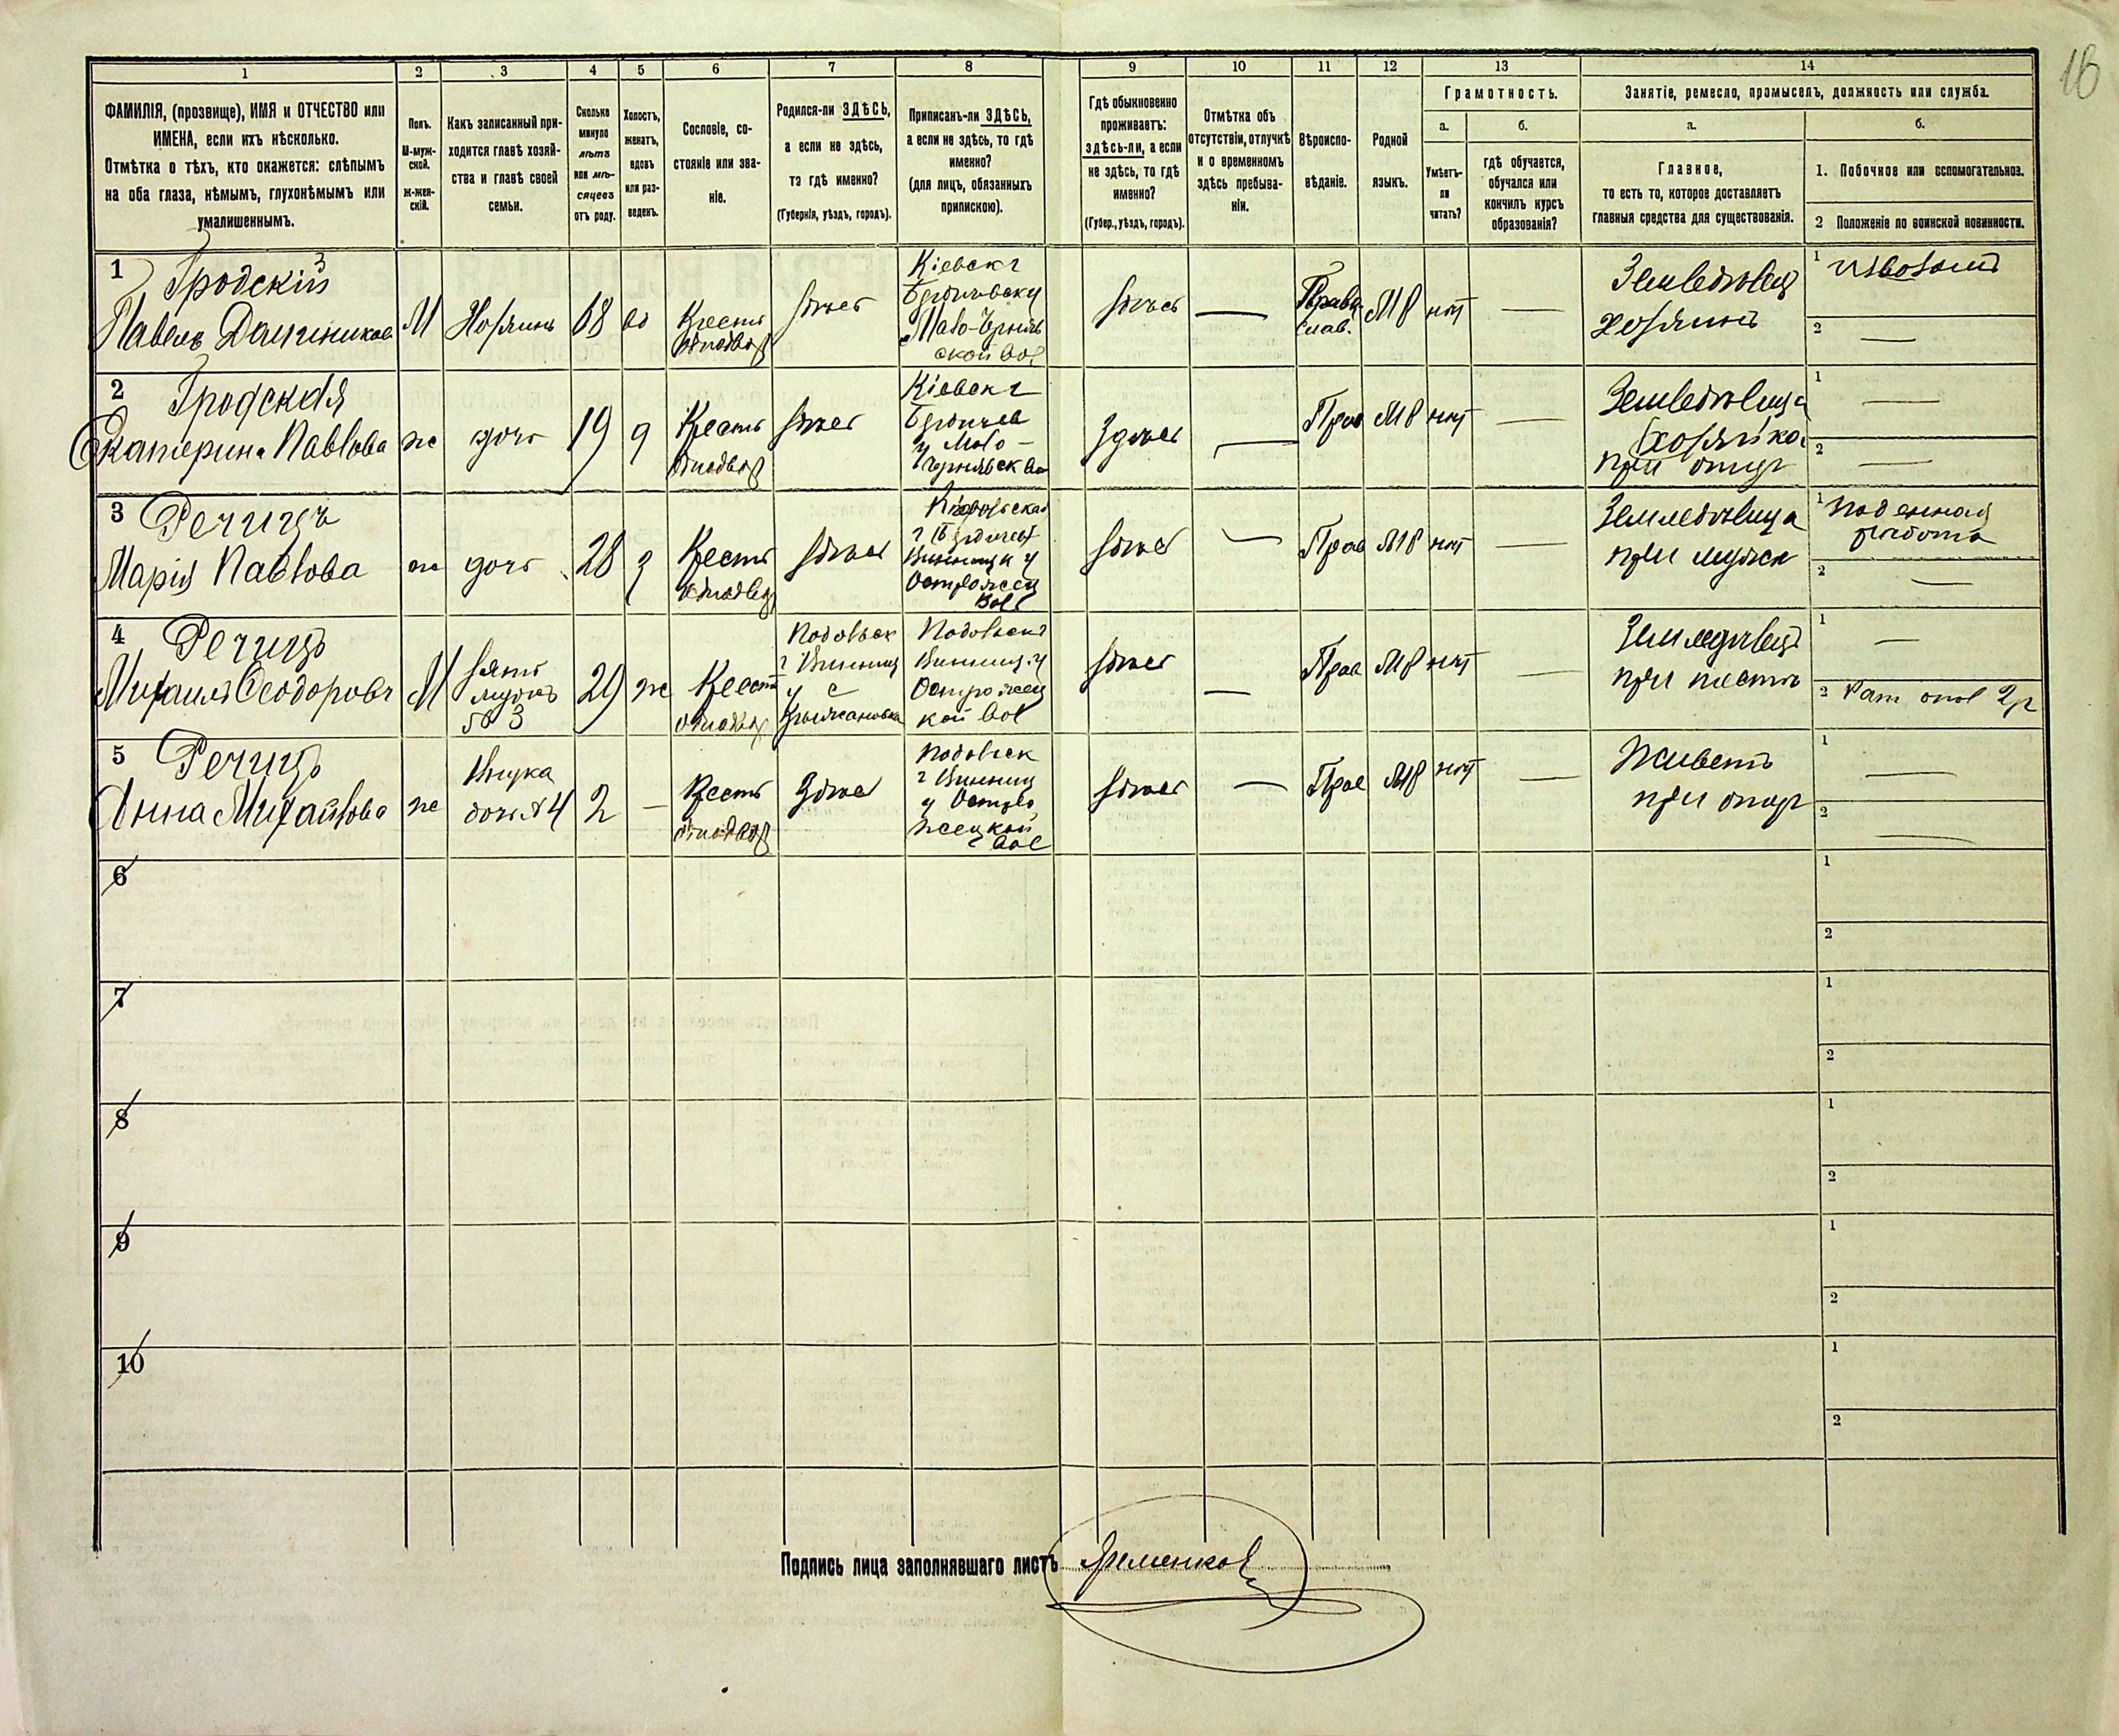 16
1 2 3 4 5 6 7 8 9 10 11 12 13 14
ФАМИЛІЯ, (прозвище), ИМЯ и ОТЧЕСТВО или
ИМЕНА, если ихъ нѣсколько.
Отмѣтка о тѣхъ, кто окажется: слѣпымъ
на оба глаза, нѣмымъ, глухонѣмымъ или
умалишеннымъ.
Полъ.
М-муж-
ской.
Ж-жен-
скій.
Какъ записанный при-
ходится главѣ хозяй-
ства и главѣ своей
семьи.
Сколько
минуло
лѣтъ
или мѣ-
сяцевъ
отъ роду.
Холостъ,
женатъ,
вдовъ
или раз-
веденъ.
Сословіе, со-
стояніе или зва-
ніе.
Родился-ли ЗДѢСЬ,
а если не здѣсь,
то гдѣ именно?
(Губернія, уѣздъ, городъ).
Приписанъ-ли ЗДѢСЬ,
а если не здѣсь, то гдѣ
именно?
(для лицъ, обязанныхъ
припискою).
Гдѣ обыкновенно
проживаетъ:
здѣсь-ли, а если
не здѣсь, то гдѣ
именно?
(Губер., уѣздъ, городъ).
Отмѣтка объ
отсутствіи, отлучкѣ
и о временномъ
здѣсь пребыва-
ніи.
Вѣроиспо-
вѣданіе.
Родной
языкъ.
Грамотность.
а.
Умѣетъ-
ли
читать?
б.
гдѣ обучается,
обучался или
кончилъ курсъ
образованія?
Занятіе, ремесло, промыселъ, должность или служба.
а.
Главное,
то есть то, которое доставляетъ
главныя средства для существованія.
б.
1. Побочное или вспомогательное.
2 Положеніе по воинской повинности.
1
Гродскій
Павелъ
М
Хозяинъ
68
вд
Крестъ
однодвор
здѣсь
Кіевск г
Бердичевск у
ской вол
здѣсь
—
Право
слав.
М8
нѣт
—
Земледѣлец
хозяинъ
1 извозомъ
2 —
2
Гродская
Екатерина Павлова
ж
дочь
19
д
Крестъ
однодвор
здѣсь
Кіевск г
Бердичев
у Мало-
здѣсь
—
Прав
М8
нѣт
—
Земледѣлица
хозяйка
при отцѣ
1 —
2 —
3
Речицъ
Марія Павлова
ж
дочь
28
з
Крестъ
однодвор
здѣсь
Винница у
вол
здѣсь
—
Прав
М8
нѣт
—
Земледѣлица
при мужѣ
1 Поденная
работа
2 —
4
Речицъ
Михаилъ Ѳеодоровъ
М
зять
мужъ
№ 3
29
ж
Крестъ
однодвор
Подольск
г Винниц
у с
Крыжановка
Подольск г
Винниц. у
Острожец
кой вол
здѣсь
—
Прав
М8
нѣт
—
Земледѣлецъ
при тестѣ
1 —
2 Рат опол 2 р
5
Речицъ
Анна Михайлова
ж
Внука
дочь № 4
2
—
Крестъ
однодвор
Здѣсь
Подольск
г Винниц
у Остро
жецкой
вол
здѣсь
—
Прав
М8
нѣт
—
Живетъ
при отцѣ
1 —
2 —
6
1
2
7
1
2
8
1
2
9
1
2
10
1
2
Подпись лица заполнявшаго листъ